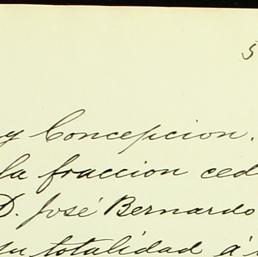 5
y Concepcion.
la fraccion ced
D. José Bernardo
su totalidad á